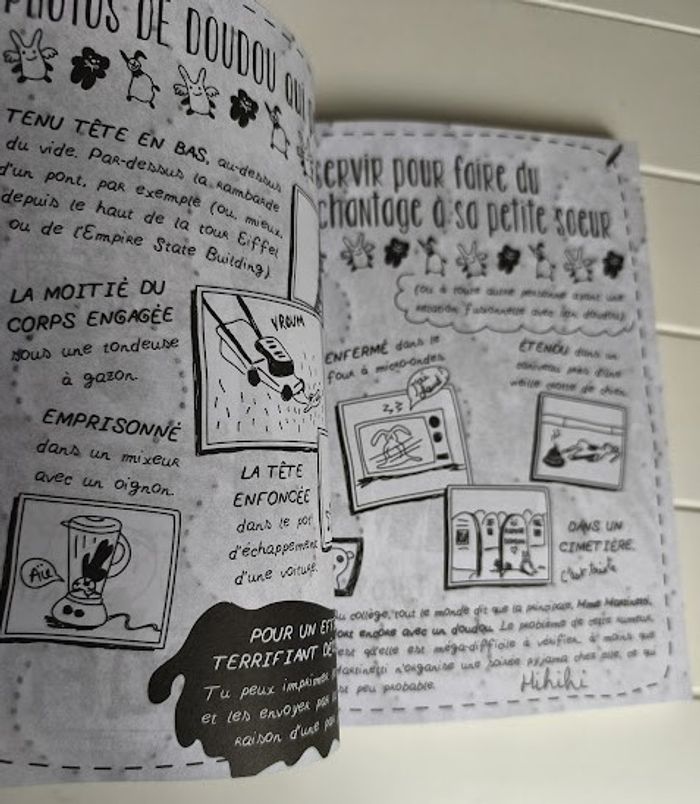 PHOTOS DE DOUDOU QUI
TENU TÊTE EN BAS, au-dessus
du vide. Par-dessus la rambarde
d'un pont, par exemple (ou, mieux,
depuis le haut de la tour Eiffel
ou de l'Empire State Building)
LA MOITIÉ DU
CORPS ENGAGÉE
sous une tondeuse
à gazon.
VROUM
EMPRISONNÉ
dans un mixeur
avec un oignon.
Aïe
LA TÊTE
ENFONCÉE
dans le pot
d'échappement
d'une voiture.
POUR UN
TERRIFIANT
Tu peux imprimer
et les envoyer
raison d'une
SERVIR POUR faire du
chantage à sa petite soeur
(ou à toute autre personne ayant une
relation fusionnelle avec son doudou)
ENFERMÉ dans le
four à micro-ondes
ÉTENDU dans un
caniveau près d'une
vieille crotte de chien
DANS UN
CIMETIÈRE.
c'est triste
Au collège, tout le monde dit que la principale, Mme Martinetti,
dort encore avec un doudou. Le problème de cette rumeur
est qu'elle est méga-difficile à vérifier, à moins que
Martinetti n'organise une soirée pyjama chez elle, ce qui
est peu probable.
Hihihi